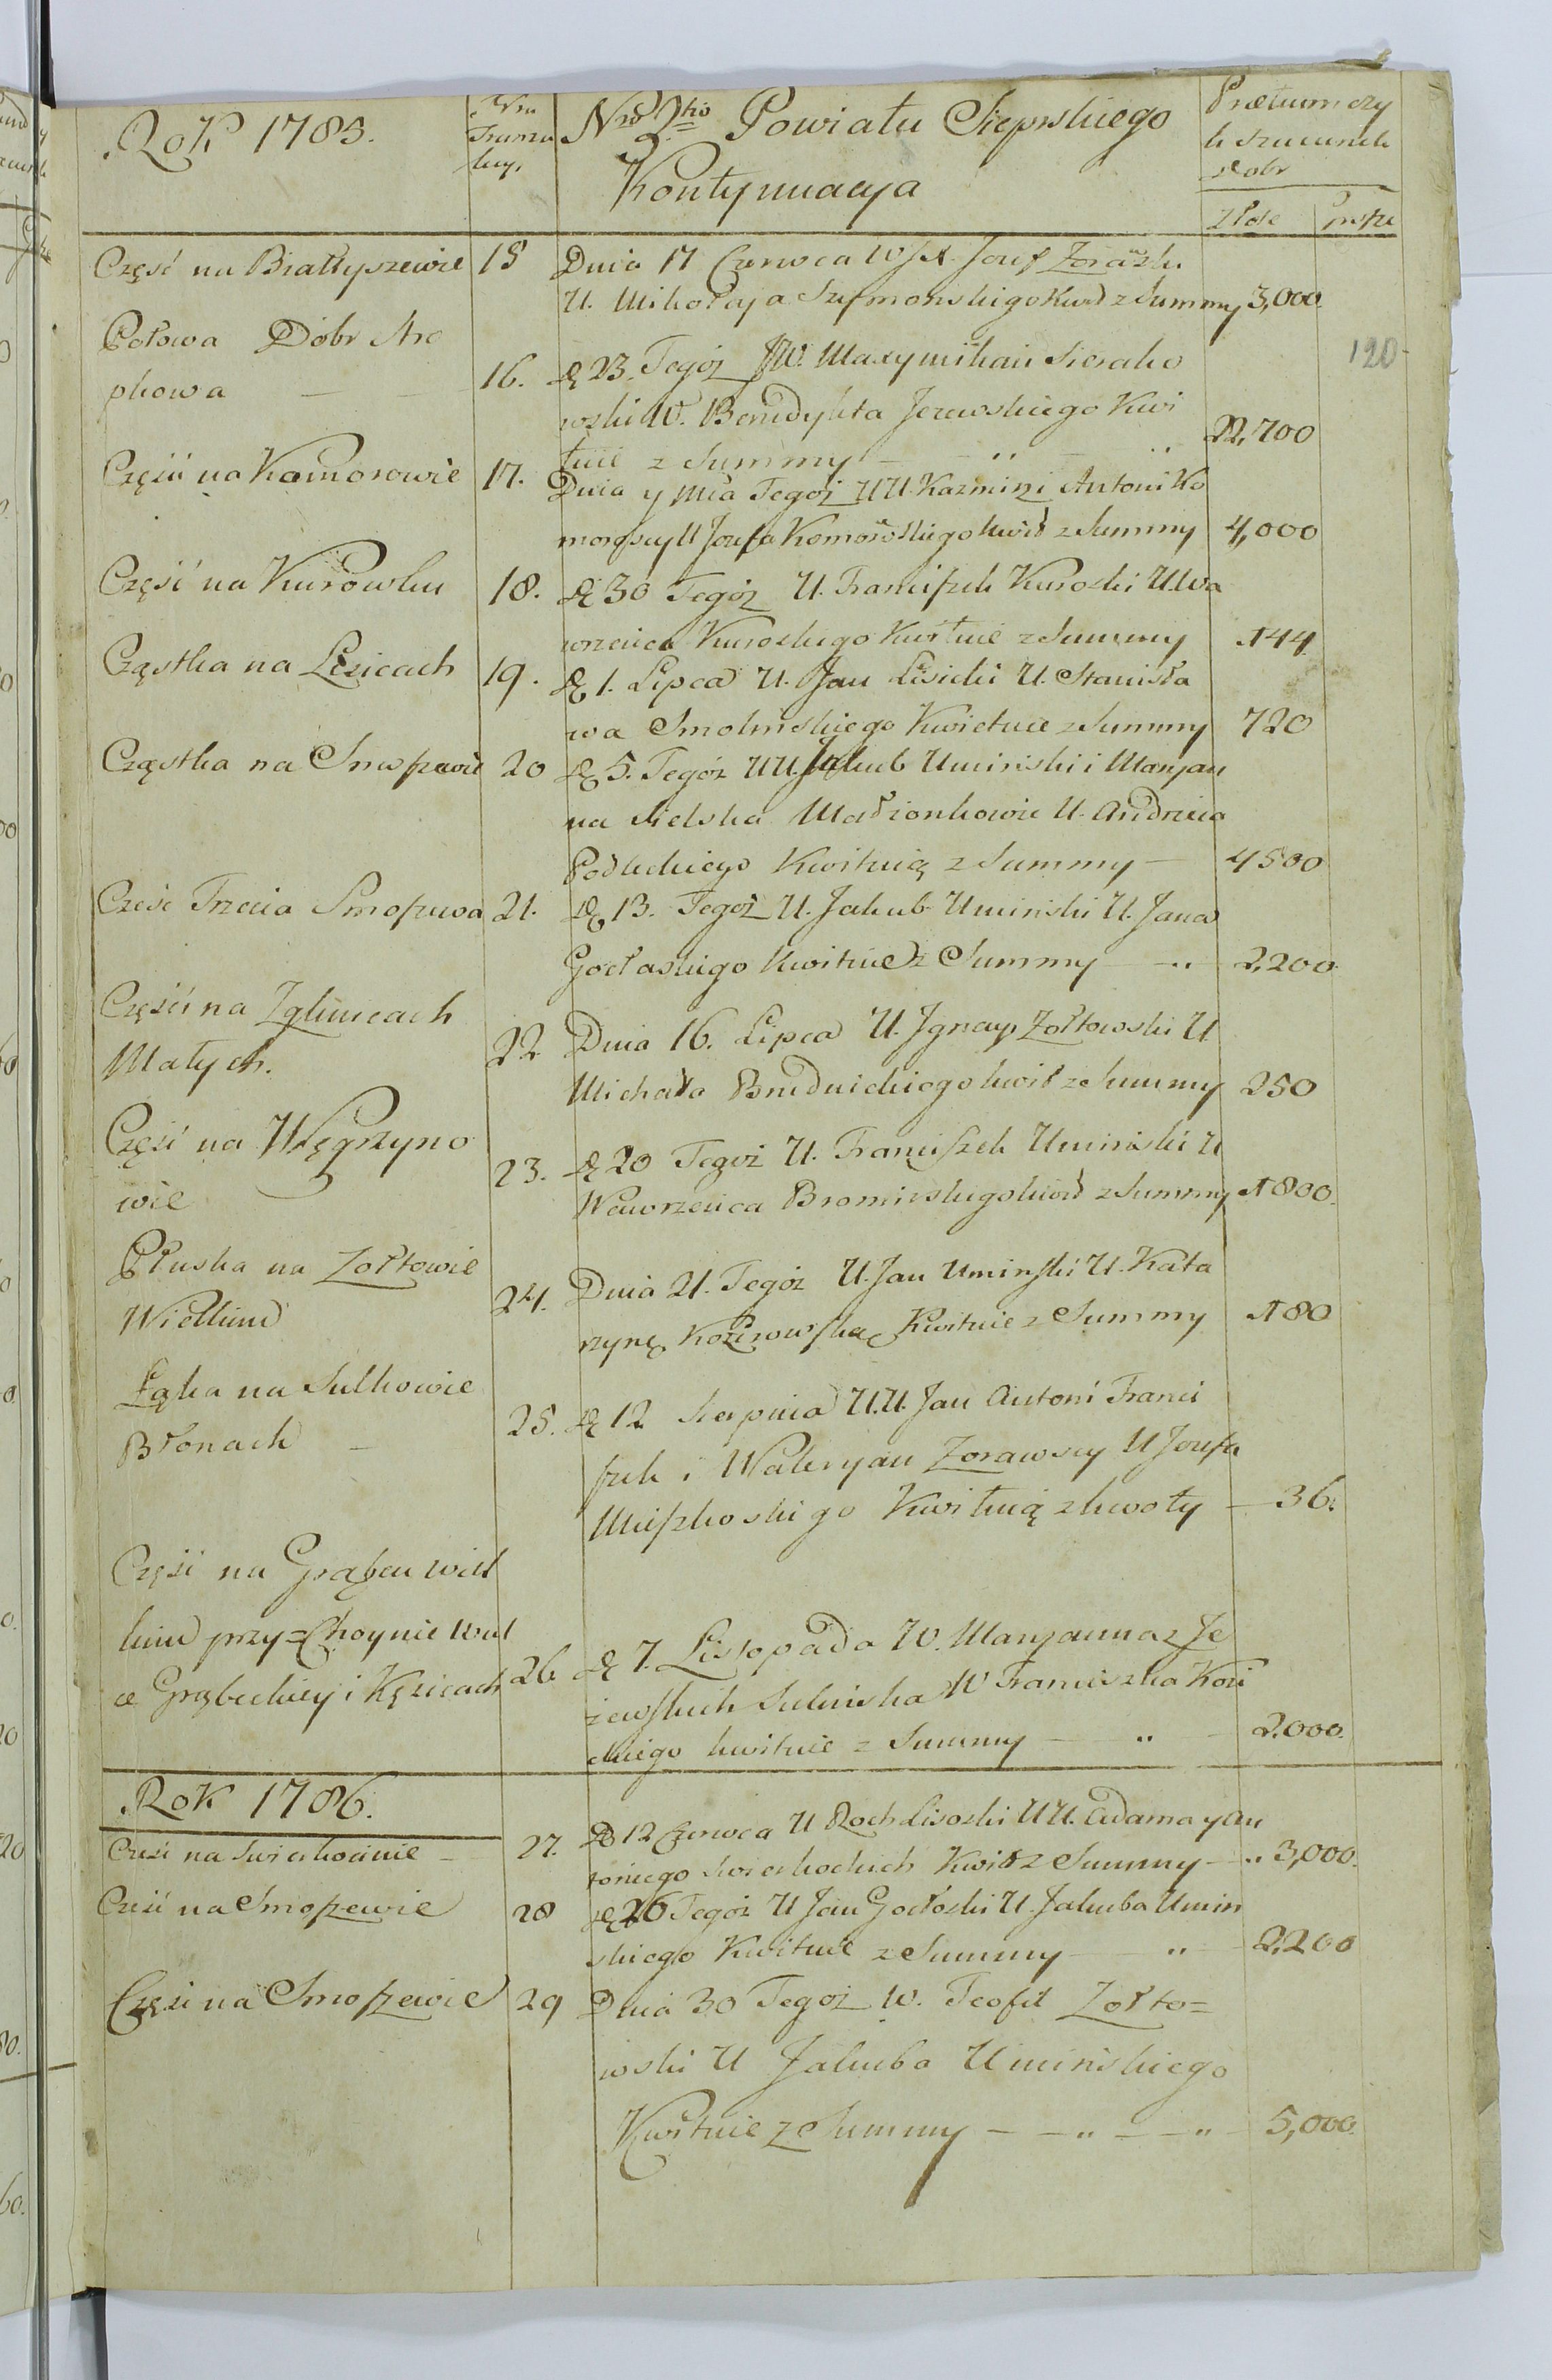 Rok 1785.
Nro 2do Powiatu Sieprskiego
Kontynuacya
Pretium czy
li szacunek
Dobr
Złote
120
Część na Białtyszewie 15 Dnia 17 Czerwca WJX. Jozef Zorawski
U. Mikołaja Szymonskigo Kwit z Summy 3,000
Połowa Dobr Are
phowa 16. D 23. Tegóż JW. Maxymilian Sierako
wski W. Benedykta Jezewskiego Kwi
tuie z Summy 22,700
Części na Komorowie 17. Dnia y Mca Tegóż UU. Kazmirz i Antoni Ko
moroscy U Jozefa Komorowskiego kwit z Summy 4,000
Część na Kurowku 18. D 30 Tegóż U. Franciszek Kuroski U. Wa
wrzenca Kuroskiego Kwituie z Summy 144
Cząstka na Lisicach 19. D 1. Lipca U. Jan Lisicki U. Stanisła
wa Smolinskiego Kwietuie z Summy 720
Cząstka na Smoszewie 20 D 5. Tegóż UU. Jakub Uminski i Maryan
na Sielska Małżonkowie U. Andrzeia
Podleckiego Kwituią z Summy 4500
Czesc Trzecia Smoszewa 21. D 13. Tegoż U. Jakub Uminski U. Jana
Gocłaskigo Kwituie z Summy 2,200
Części na Zglinicach
Małych. 22 Dnia 16. Lipca U. Jgnacy Zołtowski U
Michała Brudnickiego kwit z Summy 250
Część na Węgrzyno
wie 23. D 20 Tegoż U. Franciszek Uminski U
Wawrzenca Bromirskigo kwit z Summy 1800.
Płuska na Zołtowie
Wielkim 24. Dnia 21. Tegóż U. Jan Uminski U. Kata
rzynę Kozirowską Kwituie z Summy 180
Łąka na Sulkowie
Błonach 25. D 12 Sierpnia U.U. Jan Antoni Franci
szek i Waleryan Zorawscy U Jozefa
Miszkoskigo Kwituią z kwoty 36.
Części na Grąbcu wiel
kim przy Choynie Wul
ce Grąbeckiey i Kęsicach 26. D 7. Listopada W. Maryanna z Je
żewskich Sulinska W Franciszka Kozi
ckiego kwituie z Summy 2,000.
Rok 1786.
Część na Swierkocinie 27. D 12 Czerwca U Roch Lisoski UU. Adama y An
toniego Swierkockich Kwit z Summy 3,000.
Część na Smoszewie 28 D 26 Tegóż U Jan Gocłoski U. Jakuba Umin
skiego Kwituie z Summy 2,200
Części na Smoszewie 29 Dnia 30 Tegoż W. Teofil Zołto=
wski U Jakuba Uminskiego
Kwituie z Summy 5,000.